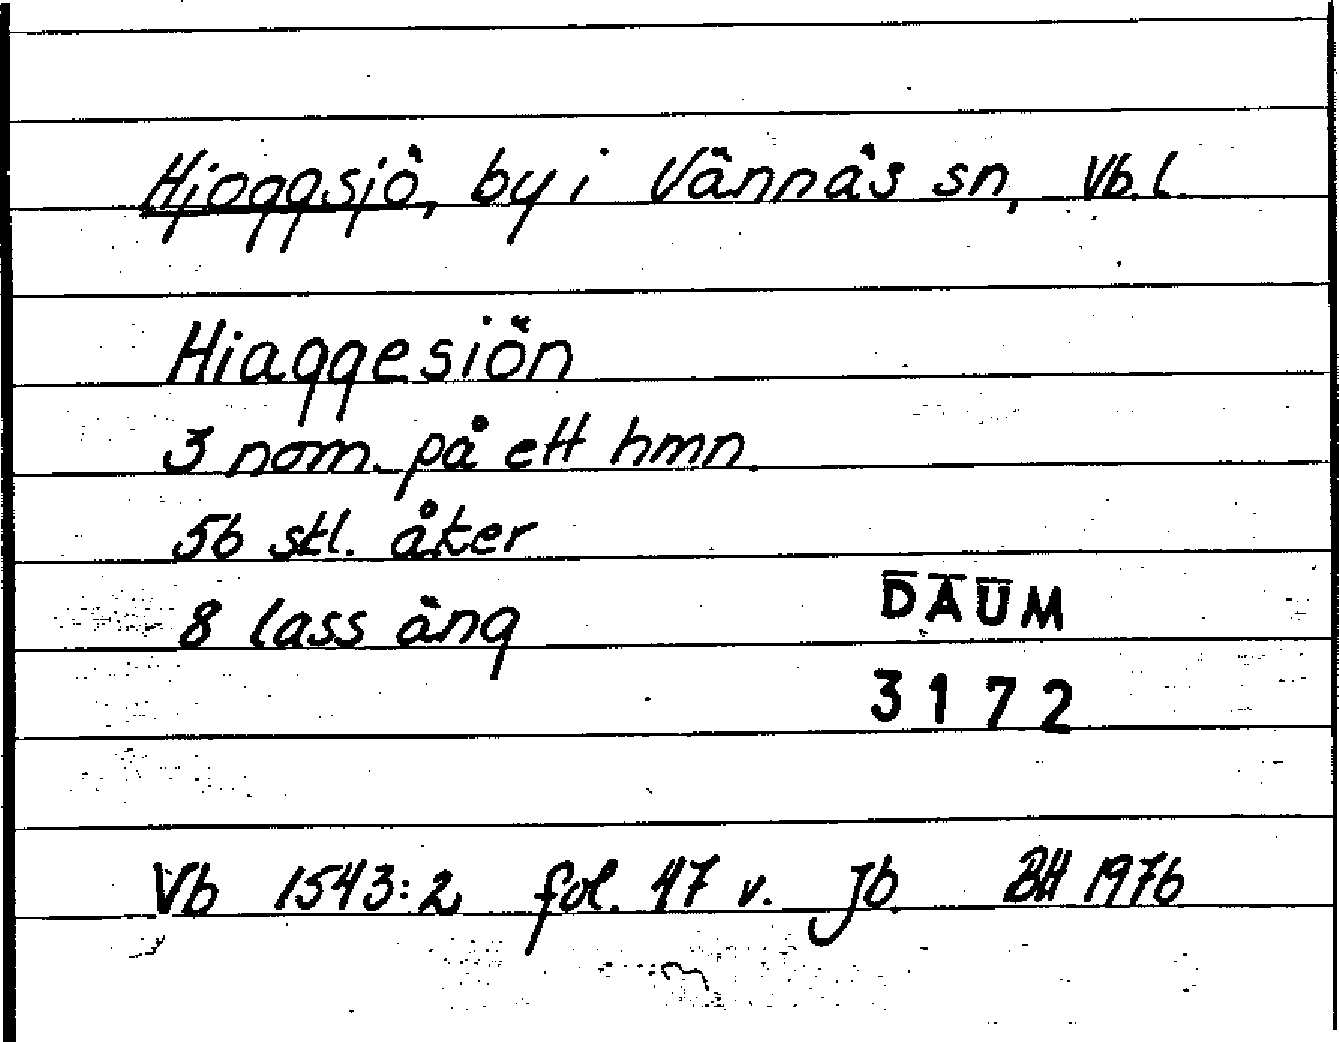 Hjoggsjö, by i Vännäs sn, Vb.l.
Hiaggesiön
3 nom. på ett hmn.
56 stl. åker
8 lass äng
DAUM
3172
Vb 1543:2 fol. 47 v. Jb. BH 1976